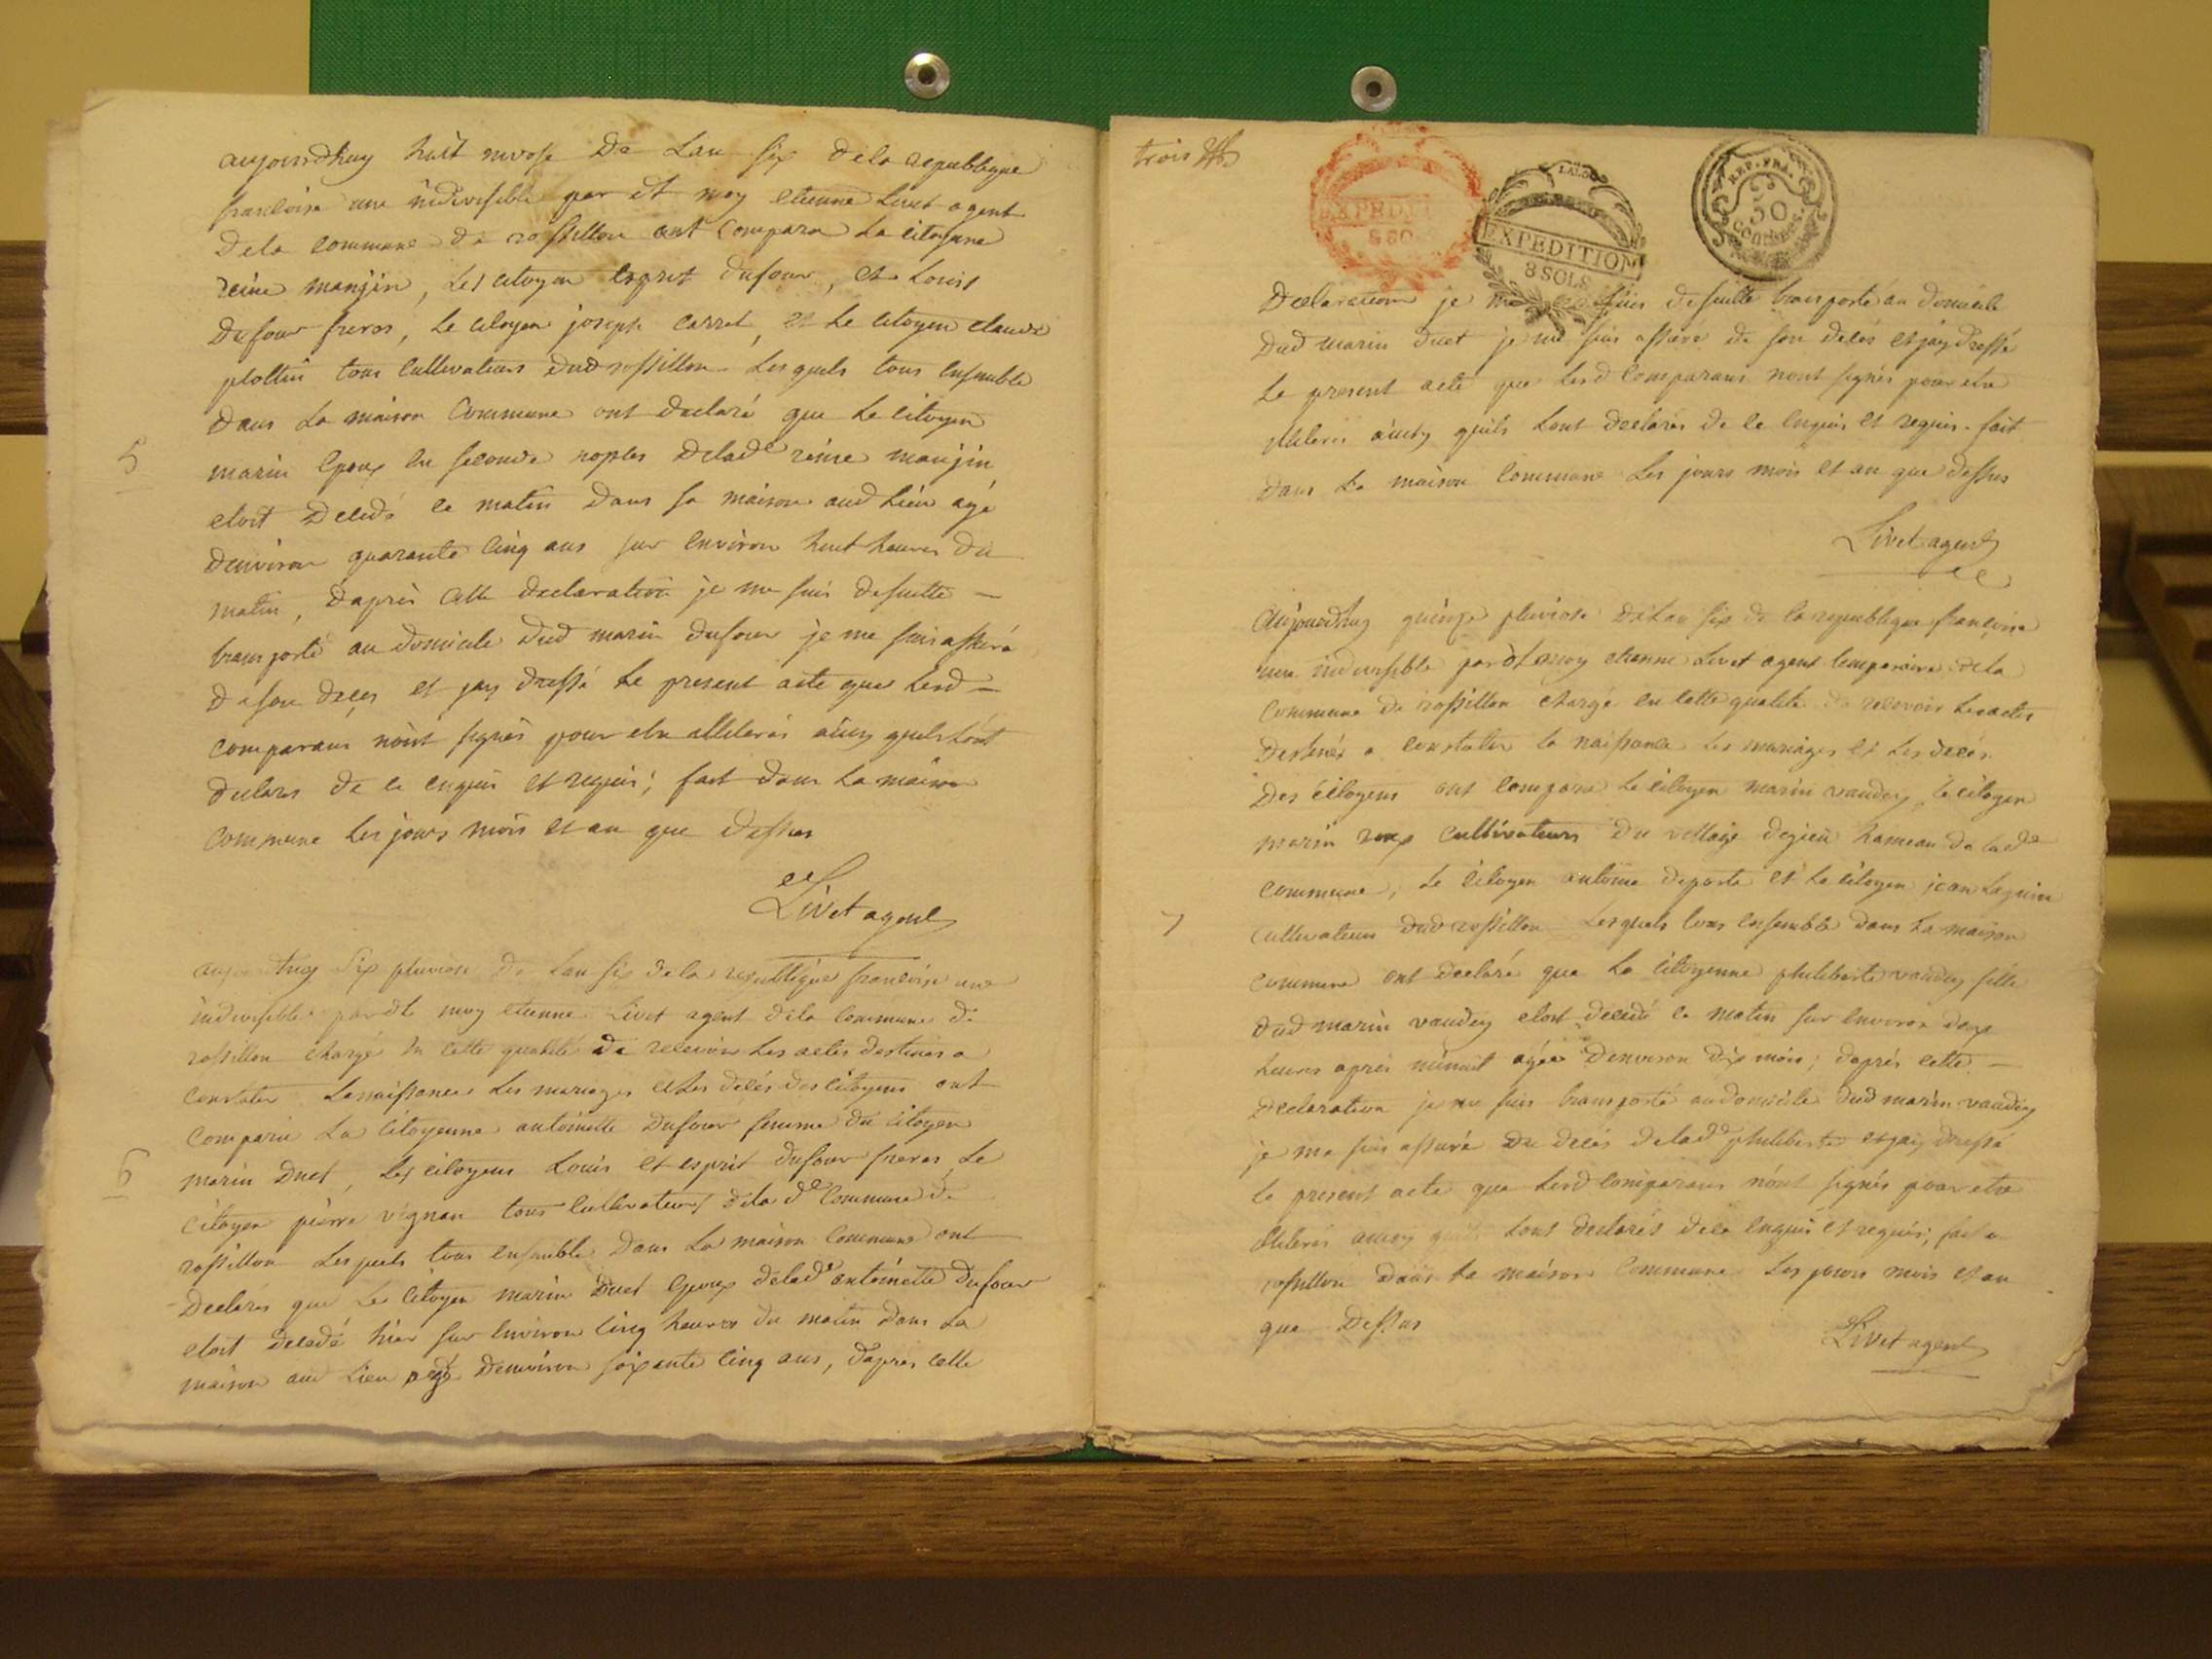 aujourdhuy huit nivose De Lan six dela republique
francoise une indivisible par dt moy etienne Livet agent
Dela commune de rossillon ont comparu La citoyene
reine manjin, Les citoyen esprit dufour, et Louis
Dufour freres, Le citoyen joseph carrel, et Le citoyen claude
plottin tous cultivateurs dud rossillon Lesquels tous ensemble
Dans La maison Commune ont declaré que Le citoyen
5
marin epoux en seconde noples delade reine manjin
etoit decedé ce matin dans sa maison aud Lieu agé
denviron quarante cinq ans sur environ huit heures du
matin, Daprès cette declaration je me suis desuitte
transporté au domicile dud marin dufour je me suis assuré
de son deces et jay dressé Le present acte que Lesd
comparans nont signés pour etre illiterés ainsy quils Lont
declares de ce enquis et requis; fait dans La maison
commune Les jours mois et an que dessus
Livet agent
six pluviose de Lan six dela republique francoise une
indivisible pardt moy etienne Livet agent dela commune de
rossillon chargé en cette qualité de recevoir Les actes destinés a
constater La naissance Les mariages et Les decés des citoyens ont
comparu La citoyenne antoinette dufour femme du citoyen
6
marin Duet, Les citoyens Louis et esprit dufour freres Le
citoyen pierre vignan tous cultivateurs dela de commune de
rossillon Lesquels tous ensemble dans La maison commune ont
declarés que Le citoyen marin Duet epoux delade antoinette dufour
etoit decedé hier sur environ cinq heures du matin dans La
maison aud Lieu agé denviron soixante cinq ans, daprès cette
trois
EXPEDITION
EXPEDITION
8 SOLS
REP. FRA.
50
CENTIMES
Declaration je me suis desuitte transporté au domicile
Dud marin duet je me suis assuré de son decés et jay dressé
Le present acte que Lesd comparans nont signés pour etre
illiterés ainsy quils Lont declarés de ce enquis et requis. fait
dans La maison commune Les jours mois et an que dessus
Livet agent
Aujourdhuy quinze pluviose de Lan six de la republique francoise
une indivisible pardt moy etienne Livet agent temporaire dela
commune de rossillon chargé en cette qualité de recevoir Les actes
Destinés a constater La naissance Les mariages et Les decés
Des citoyens ont comparu Le citoyen marin vaudey, Le citoyen
marin roux cultivateurs du village dejieu hameau de lade
commune, Le citoyen antoine deporte et Le citoyen jean
7
cultivateurs dud rossillon Lesquels tous ensemble dans La maison
commune ont declaré que La citoyenne philiberte vaudey fille
dud marin vaudey etoit decedé ce matin sur environ deux
heures après minuit agée denviron dix mois; daprés cette
Declaration je me suis transporté au domicile dud marin vaudey
je me suis assuré du decés delade philiberte et jay dressé
Le present acte que Lesd comparans nont signés pour etre
illiterés ainsy quils Lont declarés de ce enquis et requis; fait a
rossillon dans La maison commune Les jours mois et an
que Dessus
Livet agent